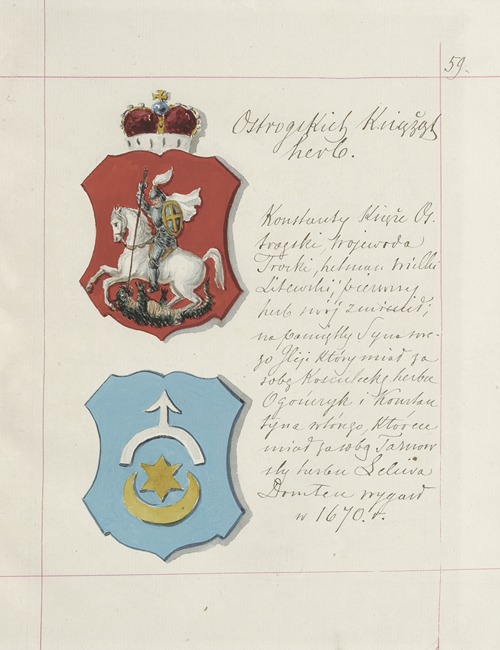 59.
Ostrogskich Książąt
herb.
Konstanty Książe Os-
trogski, Wojewoda
Trocki, hetman Wielki
Litewski, pierwszy
herb swój zmienił,
na pamiątkę Syna swe-
go Ilji który miał za
sobą Kościelecką herbu
Ogończyk i Konstan
tyna młodszego, który
miał za sobą Tarnow
ską herbu Leliwa
Dom ten wygasł
w 1670. r.